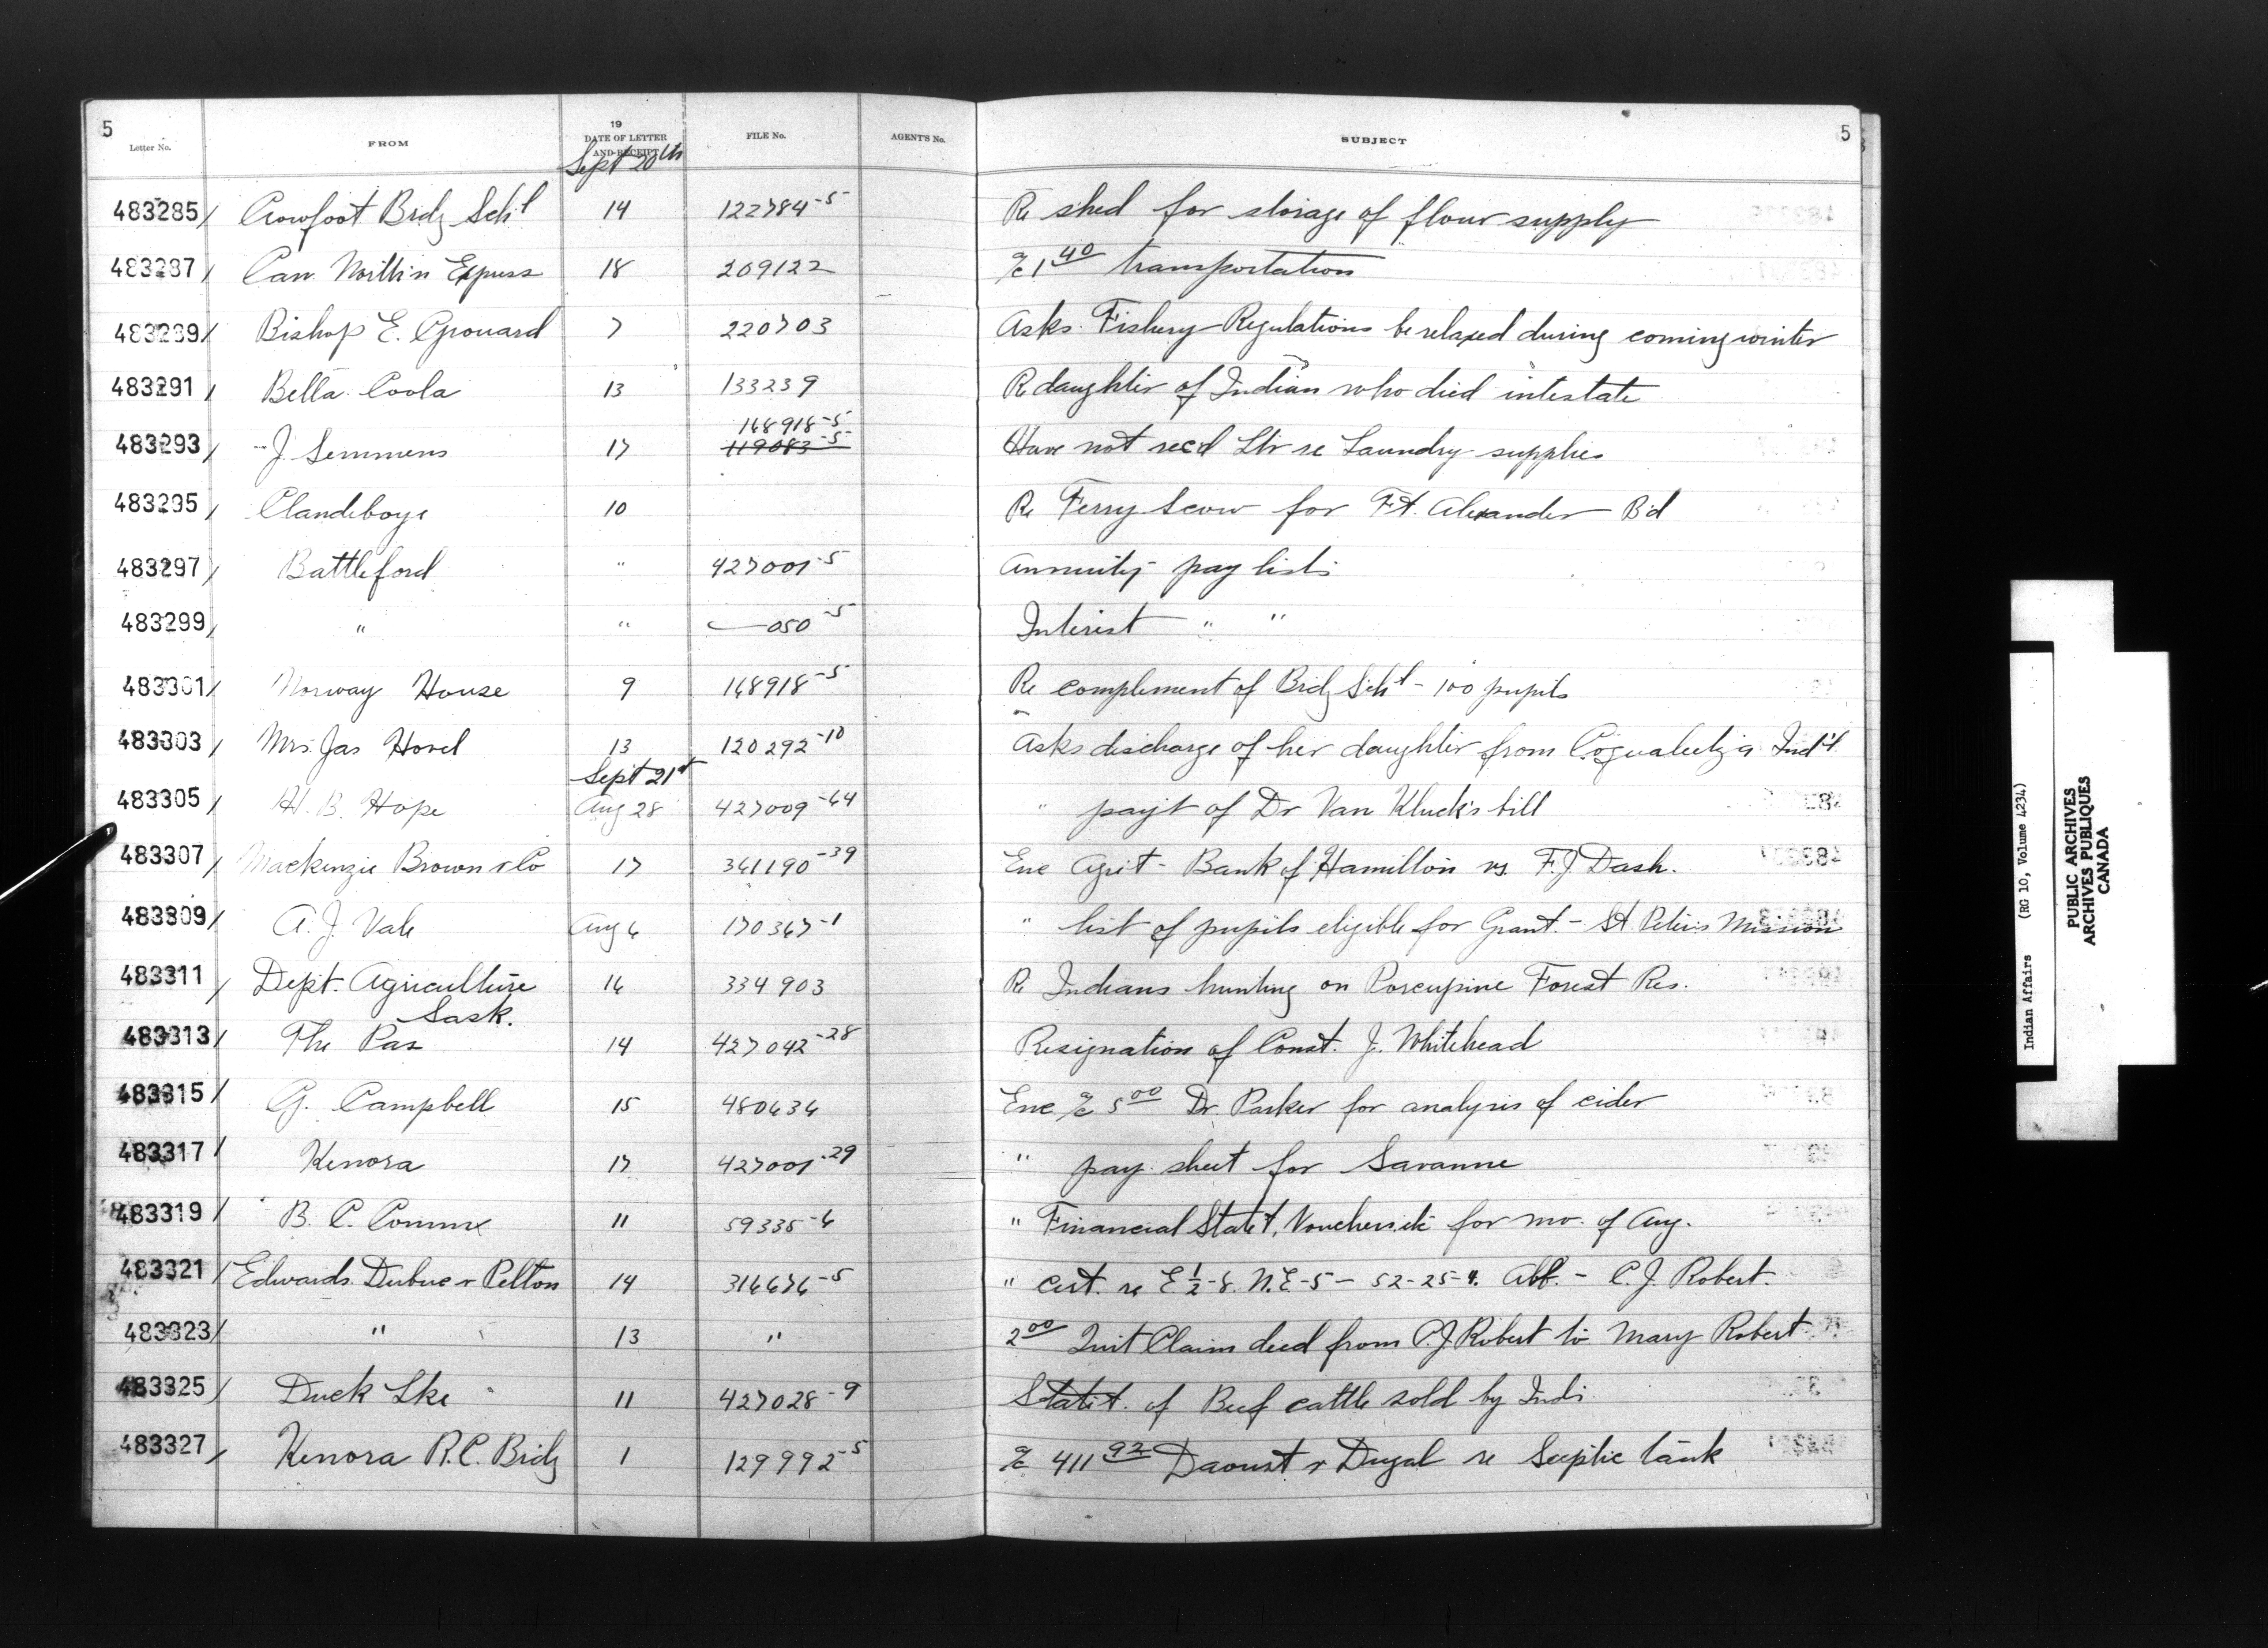 5 Letter No. FROM 19 DATE OF LETTER AND RECEIPT FILE No. AGENT'S No. SUBJECT 5
Sept 20th
483285/ Crowfoot Brdg Schl 14 122784-5 Re shed for storage of flour supply
483287/ Can. Northn Express 18 209122 a/c 1 40 transportation
483289/ Bishop E. Grouard 7 220703 Asks Fishery Regulations be relaxed during coming winter
483291/ Bella Coola 13 133239 Re daughter of Indian who died intestate
148918-5
483293/ J. Semmens 17 119083-5 Have not rec'd Ltr re Laundry supplies
483295/ Clandeboye 10 Re Ferry Scow for Ft. Alexander Bd
483297/ Battleford " 427001-5 Annuity pay lists
483299/ " " —050-5 Interest " "
483301/ Norway House 9 148918-5 Re complement of Brdg Schl - 100 pupils
483303/ Mrs. Jas Hovel 13 120292-10 Asks discharge of her daughter from Coqualeetza Ind'l
Sept 21st
483305/ H. B. Hope Aug 28 427009-64 " payt of Dr Van Kluck's bill
483307/ Mackenzie Brown & Co 17 361190-39 Enc Agrt - Bank of Hamilton vs. F. J. Dash.
483309/ A. J. Vale Aug 6 170367-1 " list of pupils eligible for Grant. - St. Peters Mission
483311/ Dept. Agriculture 16 334903 Re Indians hunting on Porcupine Forest Res.
Sask.
483313/ The Pas 14 427042-28 Resignation of Const. J. Whitehead
483315/ G. Campbell 15 480636 Enc a/c 5 00 Dr. Parker for analysis of cider
483317/ Kenora 17 427001-29 " pay sheet for Savanne
483319/ B. C. Commr 11 59335-6 " Financial Statet, Vouchers etc for mo. of Aug.
483321/ Edwards Dubuc & Pelton 14 316676-5 " cert. re E ½-8. N.E-5- 52-25-4. Abf. - C. J. Robert.
483323/ " 13 " 2 00 Quit Claim deed from C. J. Robert to Mary Robert
483325/ Duck Lke 11 427028-9 Statet. of Beef cattle sold by Inds
483327/ Kenora R.C. Brdg 1 129992-5 a/c 411 92 Daoust & Dugal re Sceptic tank
Indian Affairs (RG 10, Volume 4234)
PUBLIC ARCHIVES
ARCHIVES PUBLIQUES
CANADA